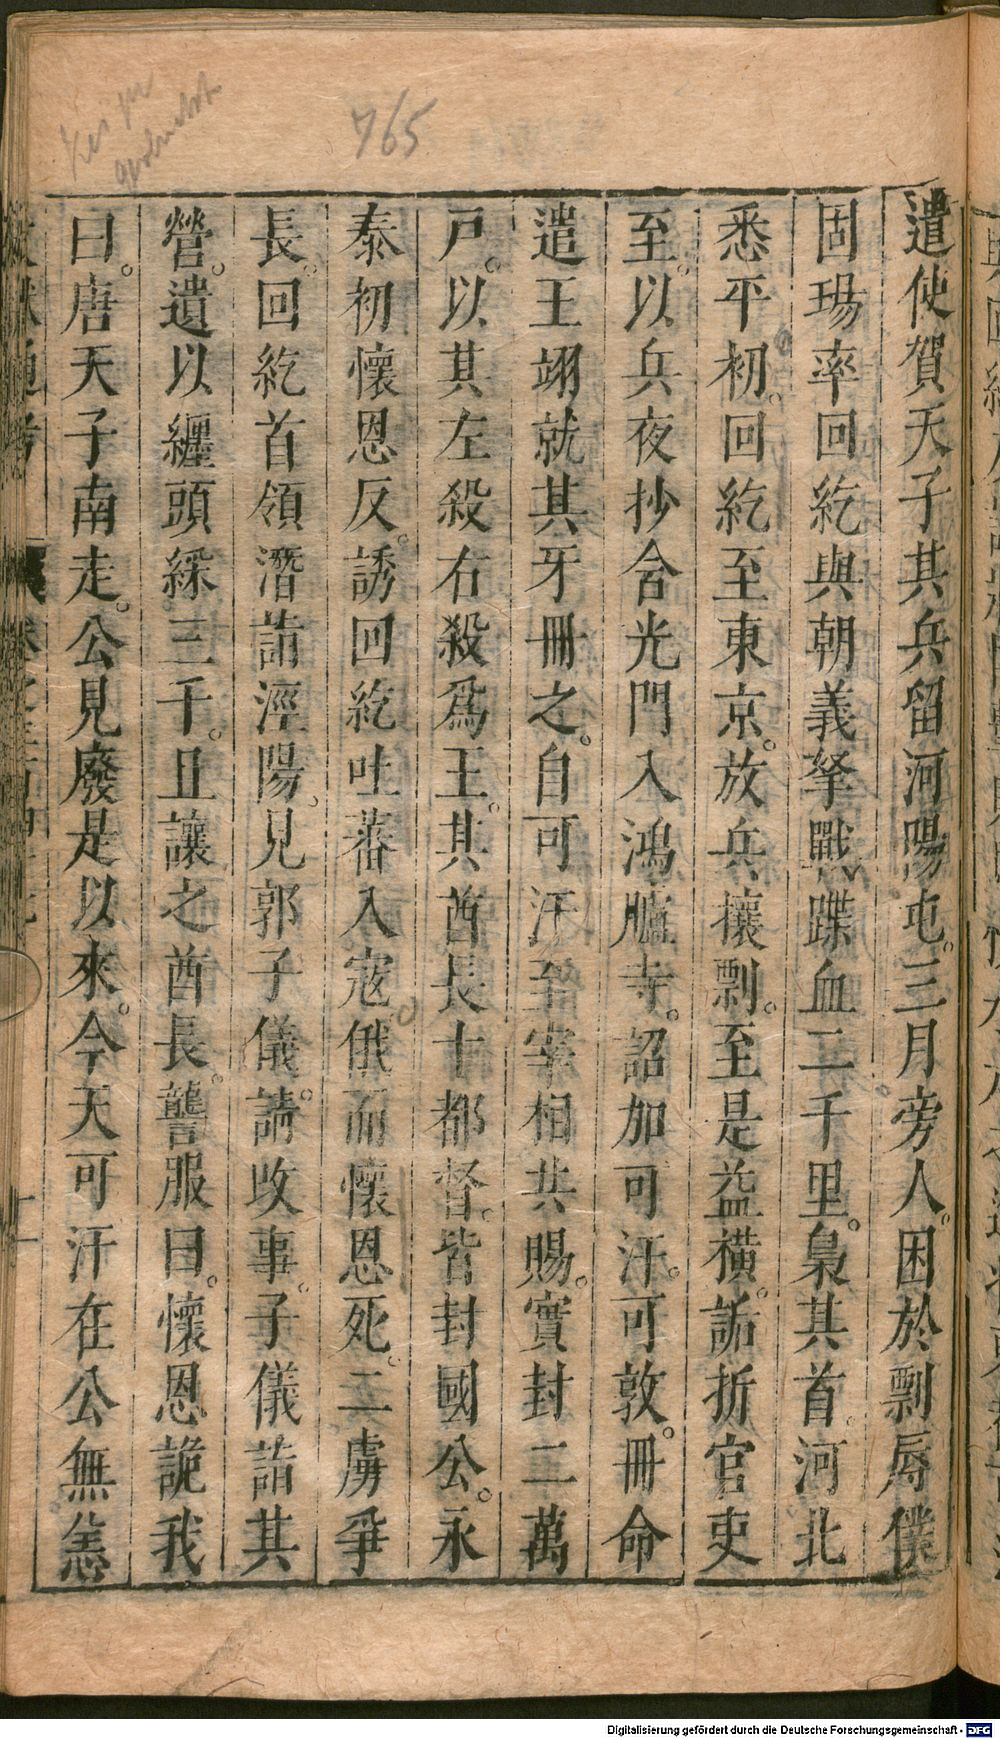 765
遣使賀天子其兵留河陽屯。三月旁人。困於剽辱僕
固瑒率回紇與朝義拏戰蹀血二千里。梟其首。河北
悉平初。回紇至東京。放兵攘剽。至是益橫。詬折官吏
至。以兵夜抄含光門入鴻臚寺。詔加可汗。可敦。冊命
遣王翊就其牙冊之。自可汗至宰相共賜。實封二萬
戸。以其左殺右殺爲王。其酋長十都督。皆封國公。永
泰初懷恩反。誘回紇吐蕃入寇俄而懷恩死。二虜爭
長。回紇首領潛詣涇陽。見郭子儀。請收事。子儀詣其
營。遺以纏頭綵三千。且讓之酋長。讋服曰。懷恩詭我
曰。唐天子南走。公見廢是以來。今天可汗在公無恙
十一
Digitalisierung gefördert durch die Deutsche Forschungsgemeinschaft - DFG